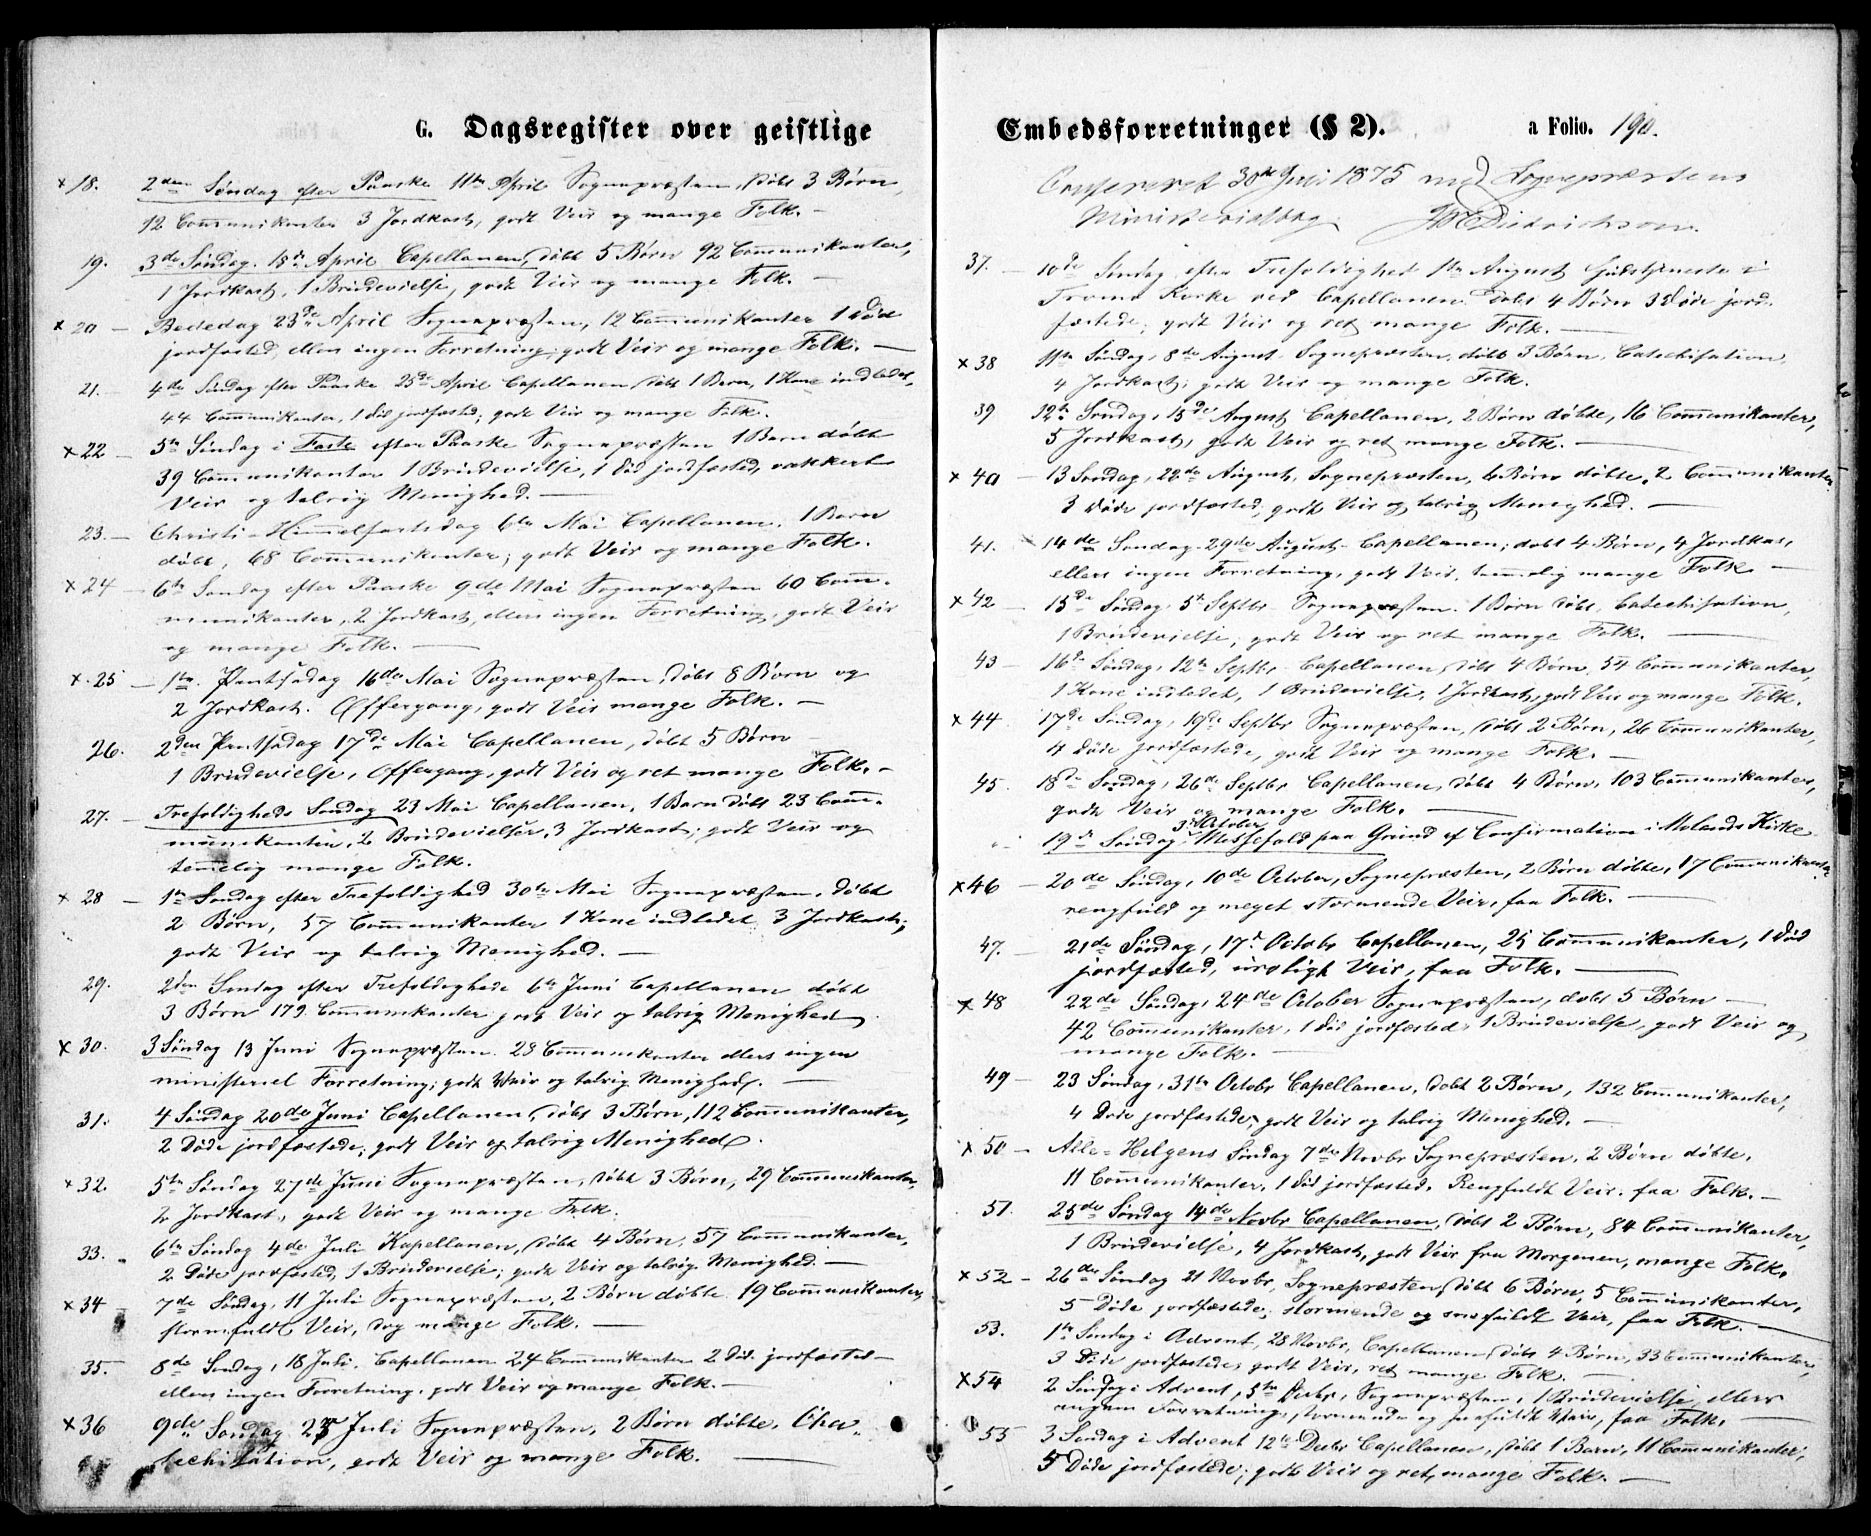 G. Dagsregister over geistlige
× 18. 2den Søndag efter Paaske 11te April Sognepræsten, døbt 3 Børn,
12 Communikanter 3 Jordkast, godt Veir og mange Folk. –
19. 3de Søndag. 18de April Capellanen, døbt 5 Børn 92 Communikanter,
1 Jordkast, 1 Brudevielse, godt Veir og mange Folk. –
× 20 – Bededag 23de April Sognepræsten, 12 Communikanter 1 Død
jordfæsted, ellers ingen Forretning; godt Veir og mange Folk. –
21. – 4de Søndag efter Paaske 25de April Capellanen, døbt 1 Barn, 1 Kone indledet,
44 Communikanter, 1 død jordfæsted; godt Veir og mange Folk.
× 22 – 5te Søndag i Faste efter Paaske Sognepræsten 1 Barn døbt
39 Communikanter 1 Brudevielse, 1 død jordfæsted, vakkert
Veir og talrig Menighed. –
23. – Christi-Himmelfartsdag 6te Mai Capellanen. 1 Barn
døbt, 68 Communikanter; godt Veir og mange Folk.
× 24 – 6te Søndag efter Paaske 9de Mai Sognepræsten 60 Com-
munikanter, 2 Jordkast, ellers ingen Forretning, godt Veir
og mange Folk. –
×. 25 – 1ste Pintsedag 16de Mai Sognepræsten, døbt 8 Børn og
2 Jordkast. Offergang, godt Veir mange Folk. –
26. 2den Pintsedag 17de Mai Capellanen, døbt 5 Børn –
1 Brudevielse, Offergang, godt Veir og ret mange Folk. –
27. – Trefoldigheds Søndag 23 Mai Capellanen, 1 Barn døbt 23 Com-
munikanter, 2 Brudevielser, 3 Jordkast; godt Veir og
temelig mange Folk.
× 28 – 1ste Søndag efter Trefoldighed 30te Mai Sognepræsten, døbt
2 Børn, 57 Communikanter 1 Kone indledet 3 Jordkast;
godt Veir og talrig Menighed. –
29. 2den Søndag efter Trefoldighede 6te Juni Capellanen døbt
3 Børn 179 Communikanter godt Veir og talrig Menighed.
× 30. 3 Søndag 13 Juni Sognepræsten. 28 Communikanter ellers ingen
ministeriel Forretning; godt Veir og talrig Menighed. –
31. 4 Søndag 20de Juni Capellanen, døbt 3 Børn, 112 Communikanter,
2 Døde jordfæstede, godt Veir og talrig Menighed.
× 32. 5te Søndag 27de Juni Sognepræsten, døbt 3 Børn, 29 Communikanter,
2 Jordkast, godt Veir og mange Folk.
33. 6te Søndag 4de Juli Kapellanen, døbt 4 Børn, 57 Communikanter,
2 Døde jordfæsted, 1 Brudevielse; godt Veir og talrig Menighed. –
× 34 – 7de Søndag, 11 Juli Sognepræsten, 2 Børn døbte 19 Communikanter,
stormfuldt Veir, dog mange Folk. –
35. 8de Søndag, 18 Juli, Capellanen 24 Communikanter 2 død. jordfæsted –
ellers ingen Forretning, godt Veir og mange Folk. –
× 36 9de Søndag 25 Juli Sognepræsten, 2 Børn døbte, Cha-
techisation, godt Veir og mange Folk. –
Embedsforretninger (§ 2).
a Folio. 190.
Confereret 30te Juli 1875 med Sognepræstens
Ministerialbog. Diedrichson.
37. – 10de Søndag efter Trefoldighed 1ste August Gudstjeneste i
Tromø Kirke ved Capellanen døbt 4 Børn 3 Døde jord-
fæstede, godt Veir og ret mange Folk. –
× 38 11te Søndag, 8de August, Sognepræsten, døbt 3 Børn, Catechisation,
4 Jordkast; godt Veir og mange Folk.
39 12te Søndag, 15de August Capellanen, 2 Børn døbte, 16 Communikanter,
5 Jordkast, godt Veir og ret mange Folk. –
× 40 – 13 Søndag, 22de August, Sognepræsten, 6 Børn døbte, 2 Communikanter.
3 Døde jordfæsted, godt Veir og talrig Menighed. –
41. 14de Søndag 29de August Capellanen; døbt 4 Børn, 4 Jordkast,
ellers ingen Forretning, godt Veir, temmelig mange Folk –
× 42 – 15de Søndag, 5te Septbr Sognepræsten. 1 Barn døbt, Catechisation,
1 Brudevielse, godt Veir og ret mange Folk. –
43 – 16de Søndag, 12te Septbr Capellanen, døbt 4 Børn, 54 Communikanter,
1 Kone indledet, 1 Brudevielse, 1 Jordkast, godt Veir og mange Folk.
× 44 17de Søndag, 19de Septbr Sognepræsten, døbt 2 Børn, 26 Communikanter,
4 Døde jordfæstede, godt Veir og mange Folk. –
45. 18de Søndag, 26de Septbr Capellanen, døbt 4 Børn, 103 Communikanter,
godt Veir og mange Folk. –
3de October
19de Søndag Messefald paa Grund af Confirmation i Molands Kirke
× 46 – 20de Søndag, 10de October, Sognepræsten, 2 Børn døbte, 17 Communikanter,
rengfuld og meget stormende Veir, faa Folk. –
47. 21de Søndag, 17de Octobr Capellanen, 25 Communikanter, 1 død
jordfæsted, uroligt Veir, faa Folk. –
× 48 22de Søndag, 24de October Sognepræsten, døbt 5 Børn –
42 Communikanter, 1 død jordfæsted, 1 Brudevielse, godt Veir og
mange Folk. –
49 – 23 Søndag, 31te Octobr Capellanen, døbt 2 Børn, 132 Communikanter,
4 Døde jordfæstede, godt Veir og talrig Menighed. –
× 50 – Alle-Helgens Søndag 7de Novbr Sognepræsten, 2 Børn døbte,
11 Communikanter, 1 død jordfæsted, Rengfuldt Veir. faa Folk. –
51. 25de Søndag 14de Novbr Capellanen, døbt 2 Børn, 84 Communikanter,
1 Brudevielse, 4 Jordkast, godt Veir fra Morgenen, mange Folk.
× 52 – 26de Søndag 21 Novbr, Sognepræsten, døbt 6 Børn, 5 Communikanter,
5 Døde jordfæstede; stormende og snefuldt Veir, faa Folk. –
53. 1ste Søndag i Advent, 28 Novbr, Capellanen, døbt 4 Børn, 33 Communikanter,
3 Døde jordfæstede, godt Veir, ret mange Folk. –
× 54 2 Søndag i Advent, 5te Decbr, Sognepræsten, 1 Brudevielse ellers
ingen Forretning, stormende og snefuldt Veir, faa Folk. –
55 3 Søndag i Advent 12te Decbr Capellanen, døbt 1 Barn, 11 Communikanter,
5 Døde jordfæstede; godt Veir og ret mange Folk. –